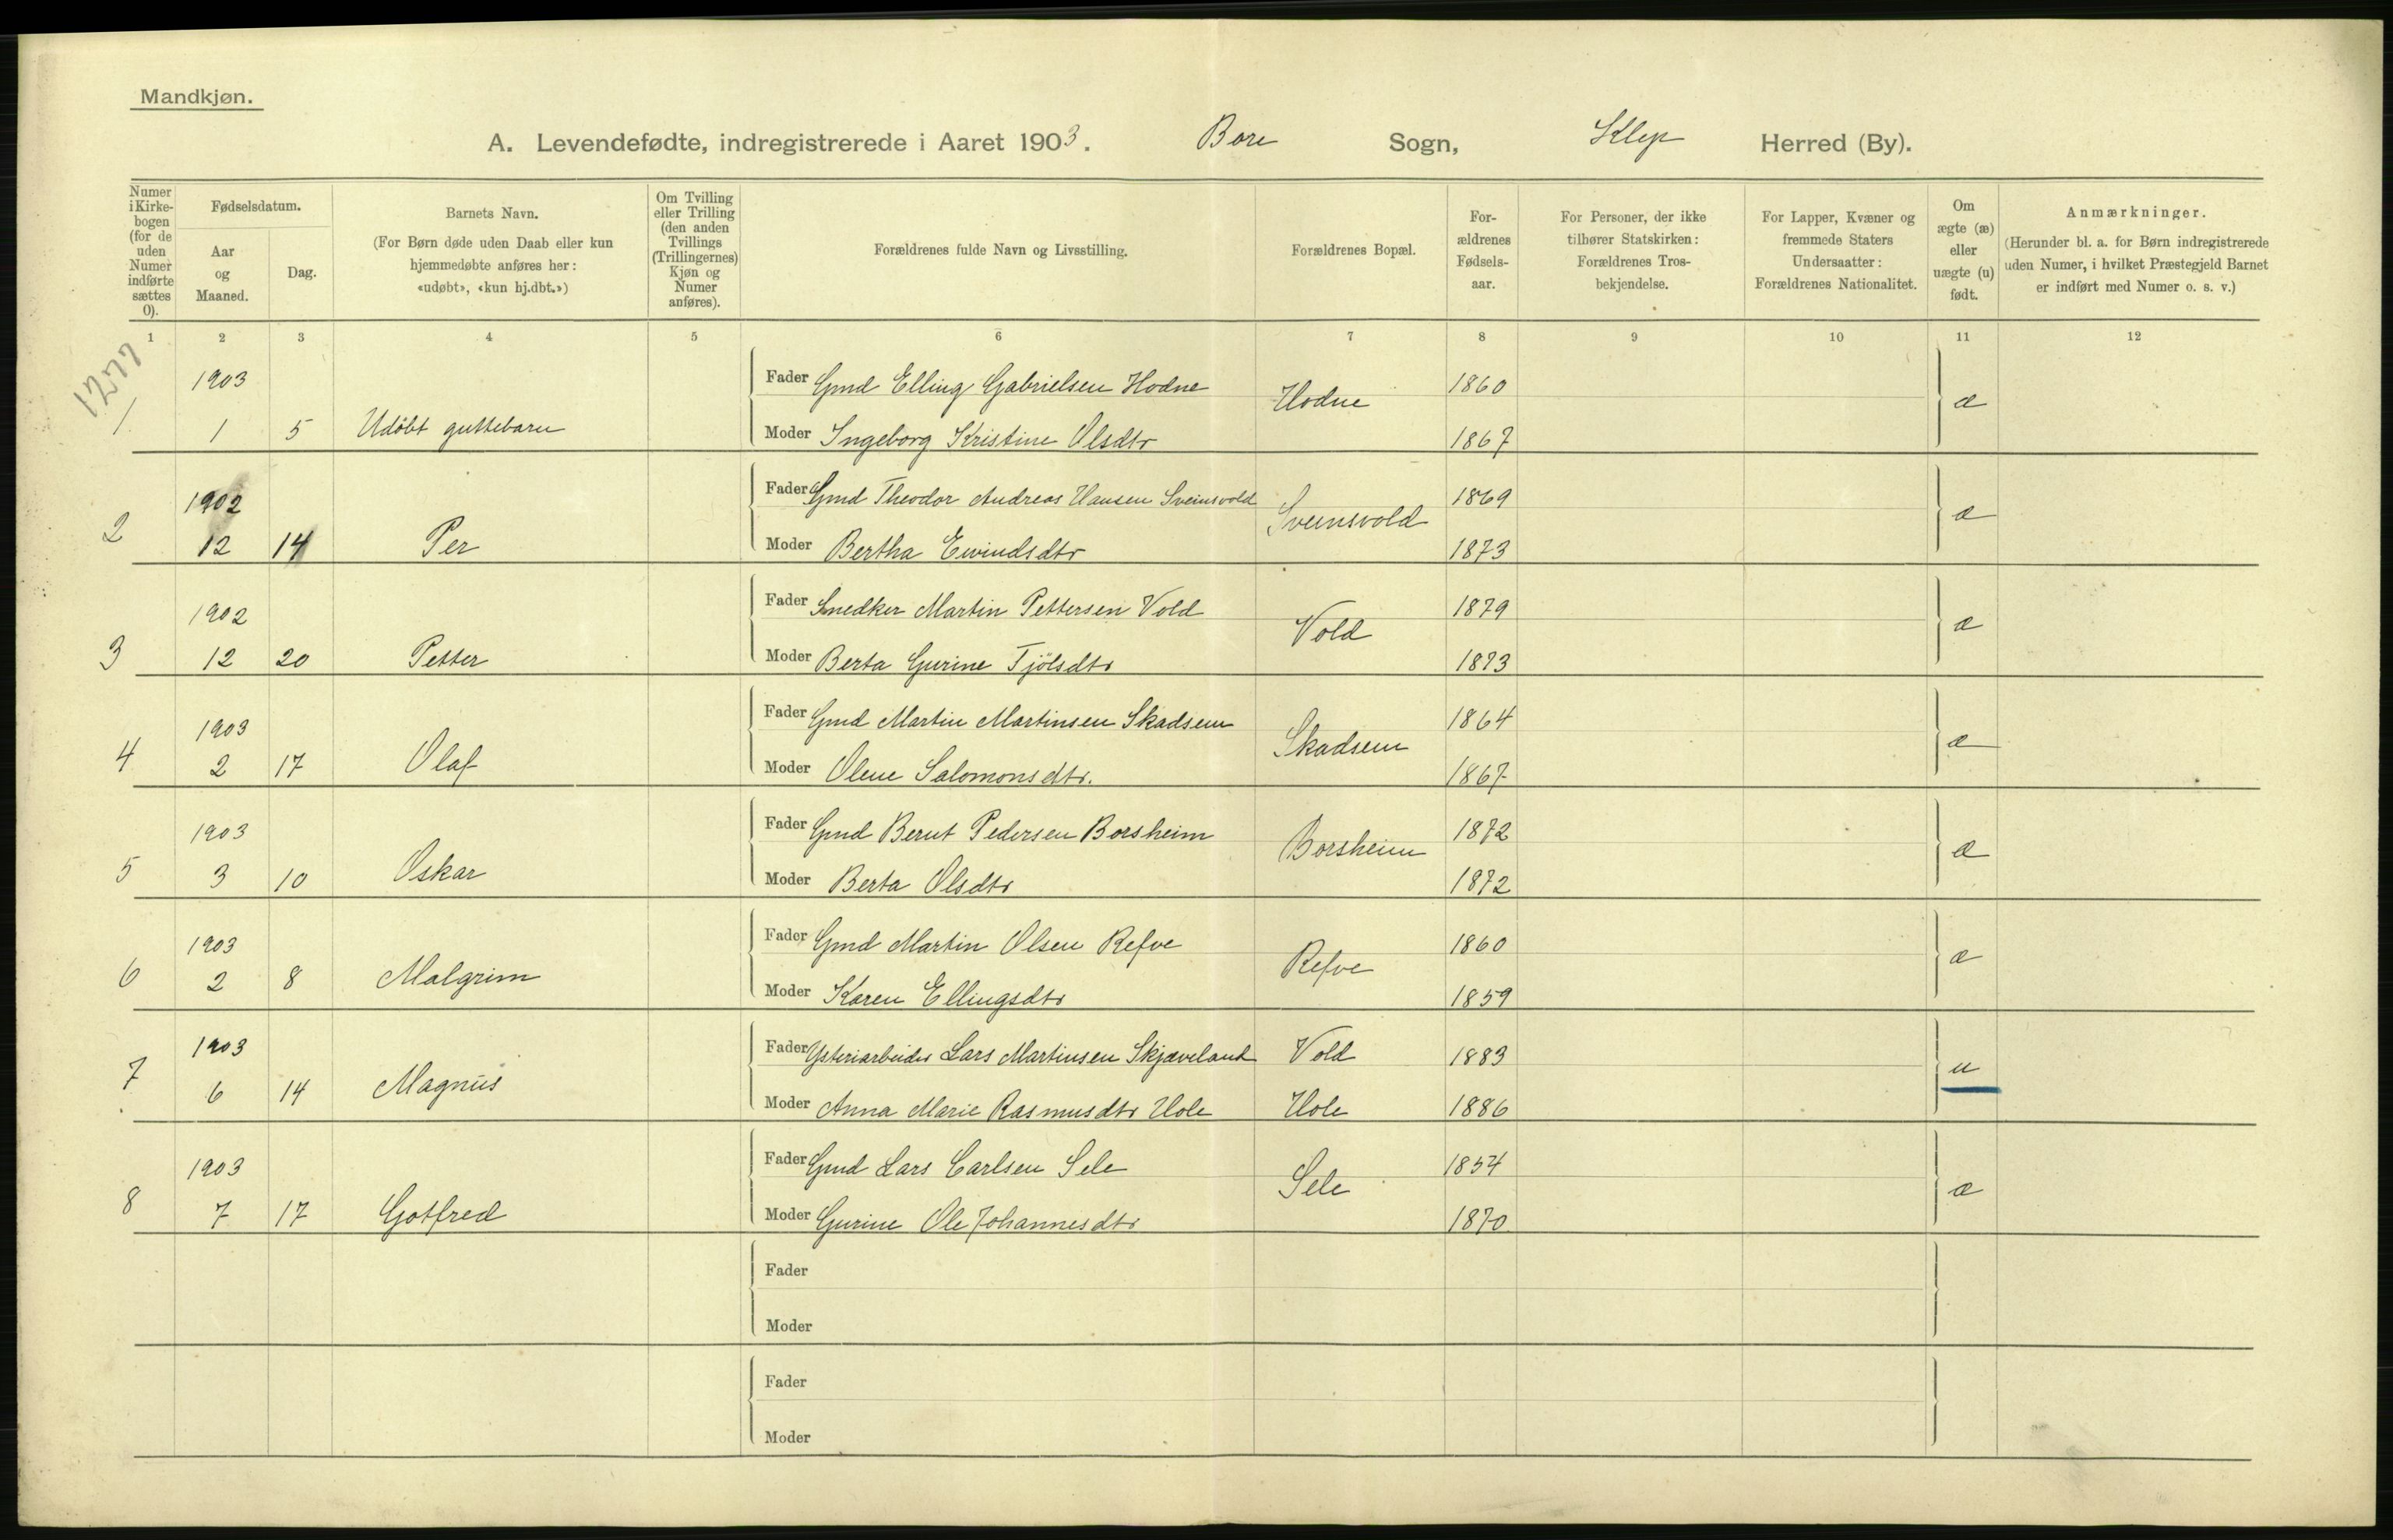 Mandkjøn.
A. Levendefødte, indregistrerede i Aaret 1903. Bore Sogn, Klep Herred (By).
Numer i Kirke-bogen (for de uden Numer indførte sættes 0).
Fødselsdatum.
Aar og Maaned.
Dag.
Barnets Navn.
(For Børn døde uden Daab eller kun hjemmedøbte anføres her: «udøbt», «kun hj.dbt.»)
Om Tvilling eller Trilling (den anden Tvillings (Trillingernes) Kjøn og Numer anføres).
Forældrenes fulde Navn og Livsstilling.
Forældrenes Bopæl.
For-ældrenes Fødsels-aar.
For Personer, der ikke tilhører Statskirken: Forældrenes Tros-bekjendelse.
For Lapper, Kvæner og fremmede Staters Undersaatter: Forældrenes Nationalitet.
Om ægte (æ) eller uægte (u) født.
Anmærkninger.
(Herunder bl. a. for Børn indregistrerede uden Numer, i hvilket Præstegjeld Barnet er indført med Numer o. s. v.)
1 2 3 4 5 6 7 8 9 10 11 12
1277
1903 Fader Gmd Elling Gabrielsen Hodne Hodne 1860 æ
1. 1 5 Udöbt guttebarn Moder Ingeborg Kristine Olsdtr 1867
1902 Fader Gmd Theodor Andreas Hansen Sveinsvold Sveinsvold 1869 æ
2 12 14 Per Moder Bertha Eivindsdtr 1873
1902 Fader Snedker Martin Pettersen Vold Vold 1879 æ
3 12 20 Petter Moder Berta Gurine Tjölsdtr 1873
1903 Fader Gmd Martin Martinsen Skadsem Skadsem 1864 æ
4 2 17 Olaf Moder Olene Salomonsdtr. 1867
1903 Fader Gmd Bernt Pedersen Borsheim Borsheim 1872 æ
5 3 10 Oskar Moder Berta Olsdtr 1872
1903 Fader Gmd Martin Olsen Refve Refve 1860 æ
6 2 8 Malgrim Moder Karen Ellingsdtr 1859
1903 Fader Ysteriarbeider Lars Martinsen Skjæveland Vold 1883 u
7 6 14 Magnus Moder Anna Marie Rasmusdtr Hole Hole 1886
1903 Fader Gmd Lars Carlsen Sele Sele 1854 æ
8 7 17 Gotfred Moder Gurine Ole Johannesdtr 1870
Fader
Moder
Fader
Moder